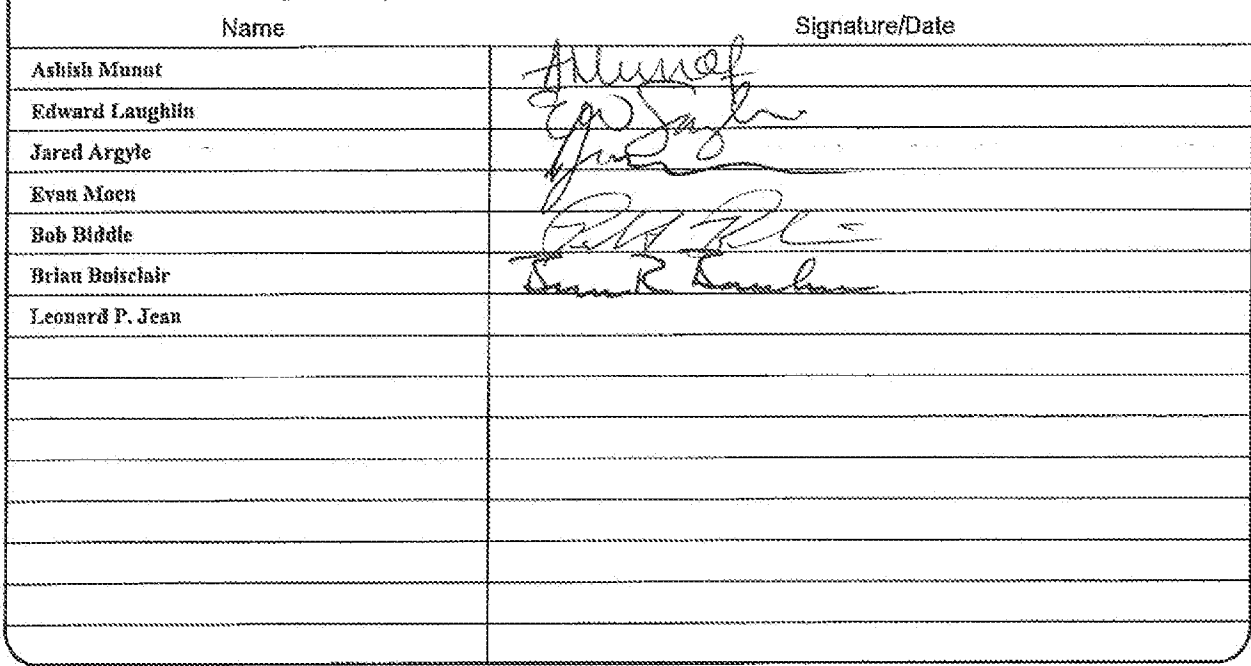 Name Signature/Date
Ashish Munot AMunot
Edward Laughlin
Jared Argyle
Evan Moen
Bob Biddle
Brian Boisclair
Leonard P. Jean